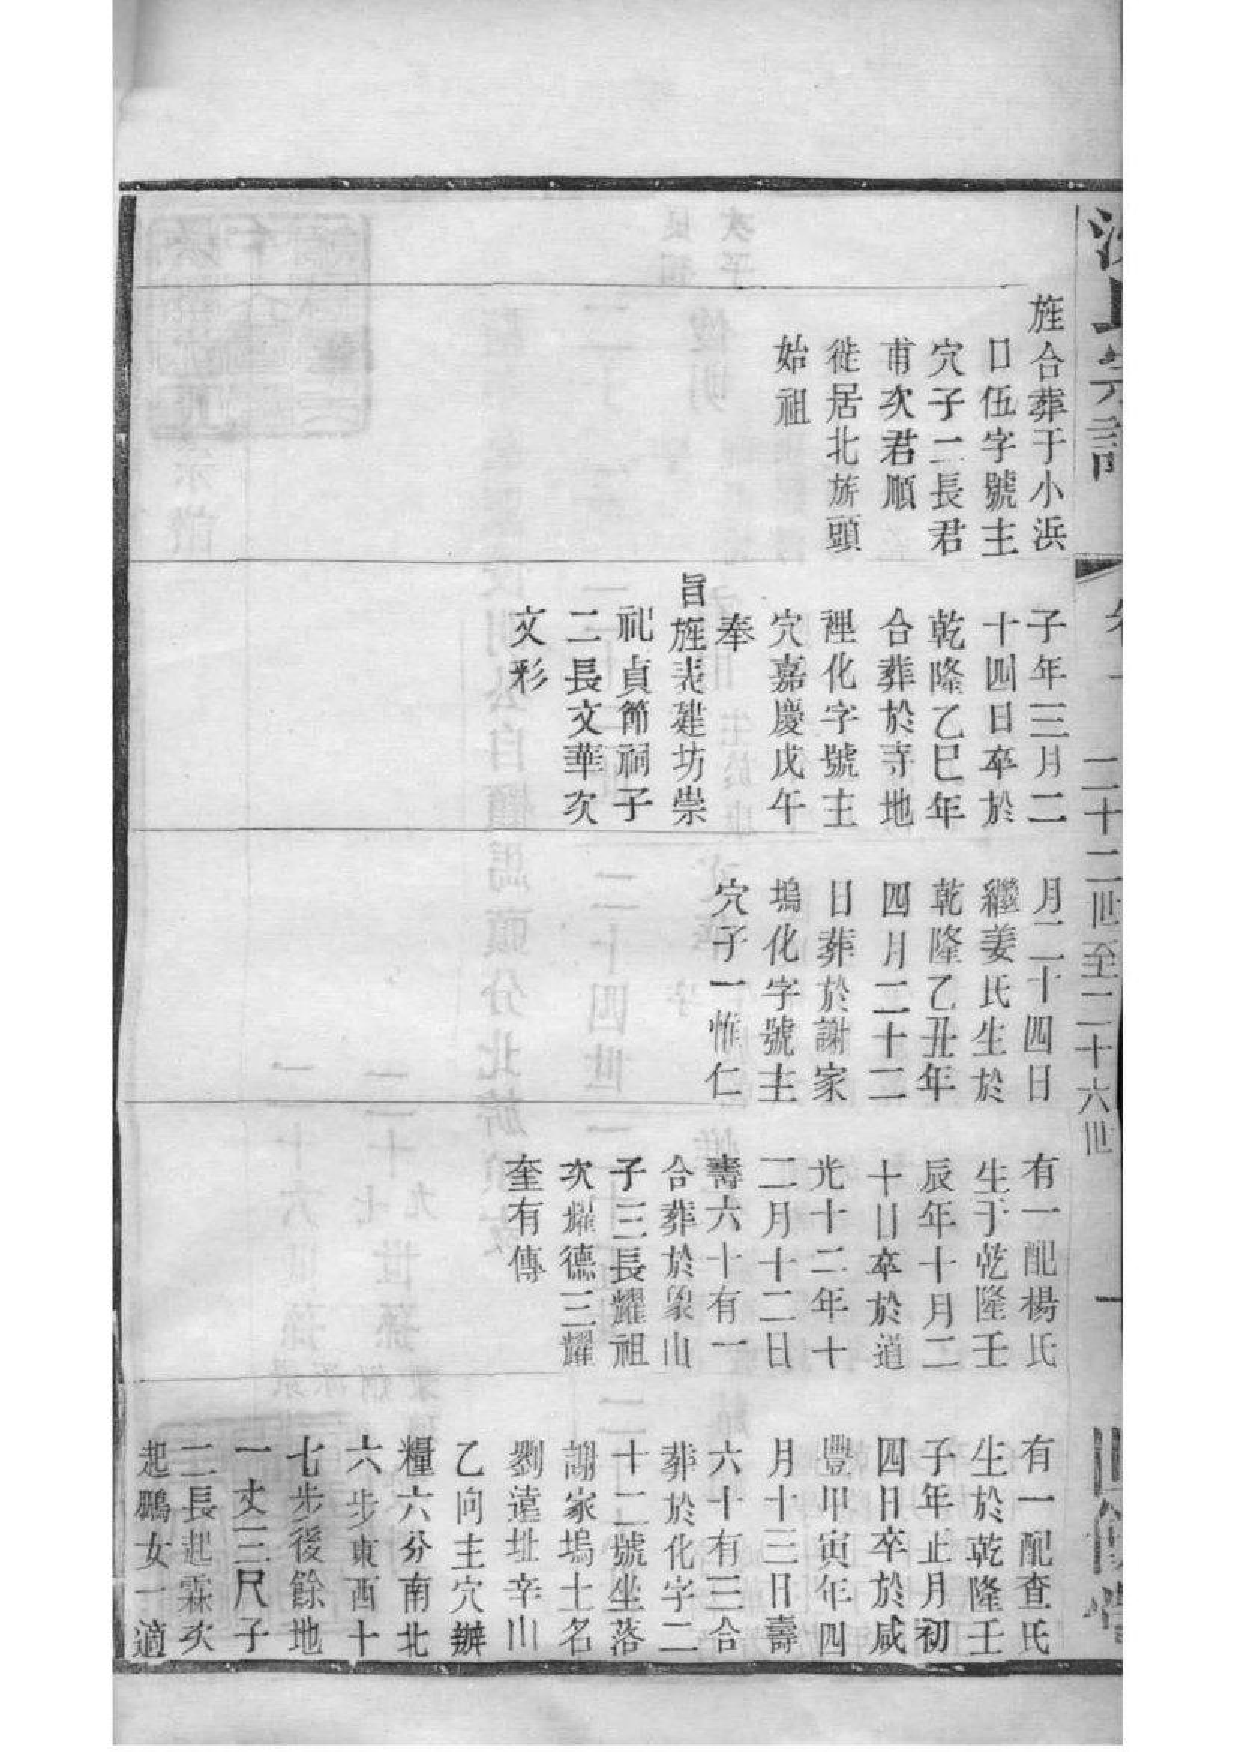 氏宗譜
二十二世至二十六世
旌合葬于小浜
口伍字號主
穴子二長君
甫次君順
徙居北旂頭
始祖
子年三月二
十四日卒於
乾隆乙巳年
合葬於寺地
裡化字號主
穴嘉慶戊午
奉
旨旌表建坊崇
祀貞節祠子
二長文華次
文彩
月二十四日
繼姜氏生於
乾隆乙丑年
四月二十二
日葬於謝家
塢化字號主
穴子一惟仁
有一配楊氏
生于乾隆壬
辰年十月二
十日卒於道
光十二年十
二月十二日
壽六十有一
合葬於象山
子三長耀祖
次耀德三耀
奎有傳
有一配查氏
生於乾隆壬
子年正月初
四日卒於咸
豐甲寅年四
月十三日壽
六十有三合
葬於化字二
十二號坐落
謝家塢土名
劉遠址辛山
乙向主穴辦
糧六分南北
六步東西十
七步後餘地
一丈三尺子
二長起霖次
起鵬女一適